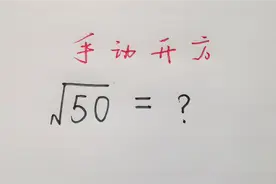 手动开方
√50 = ?